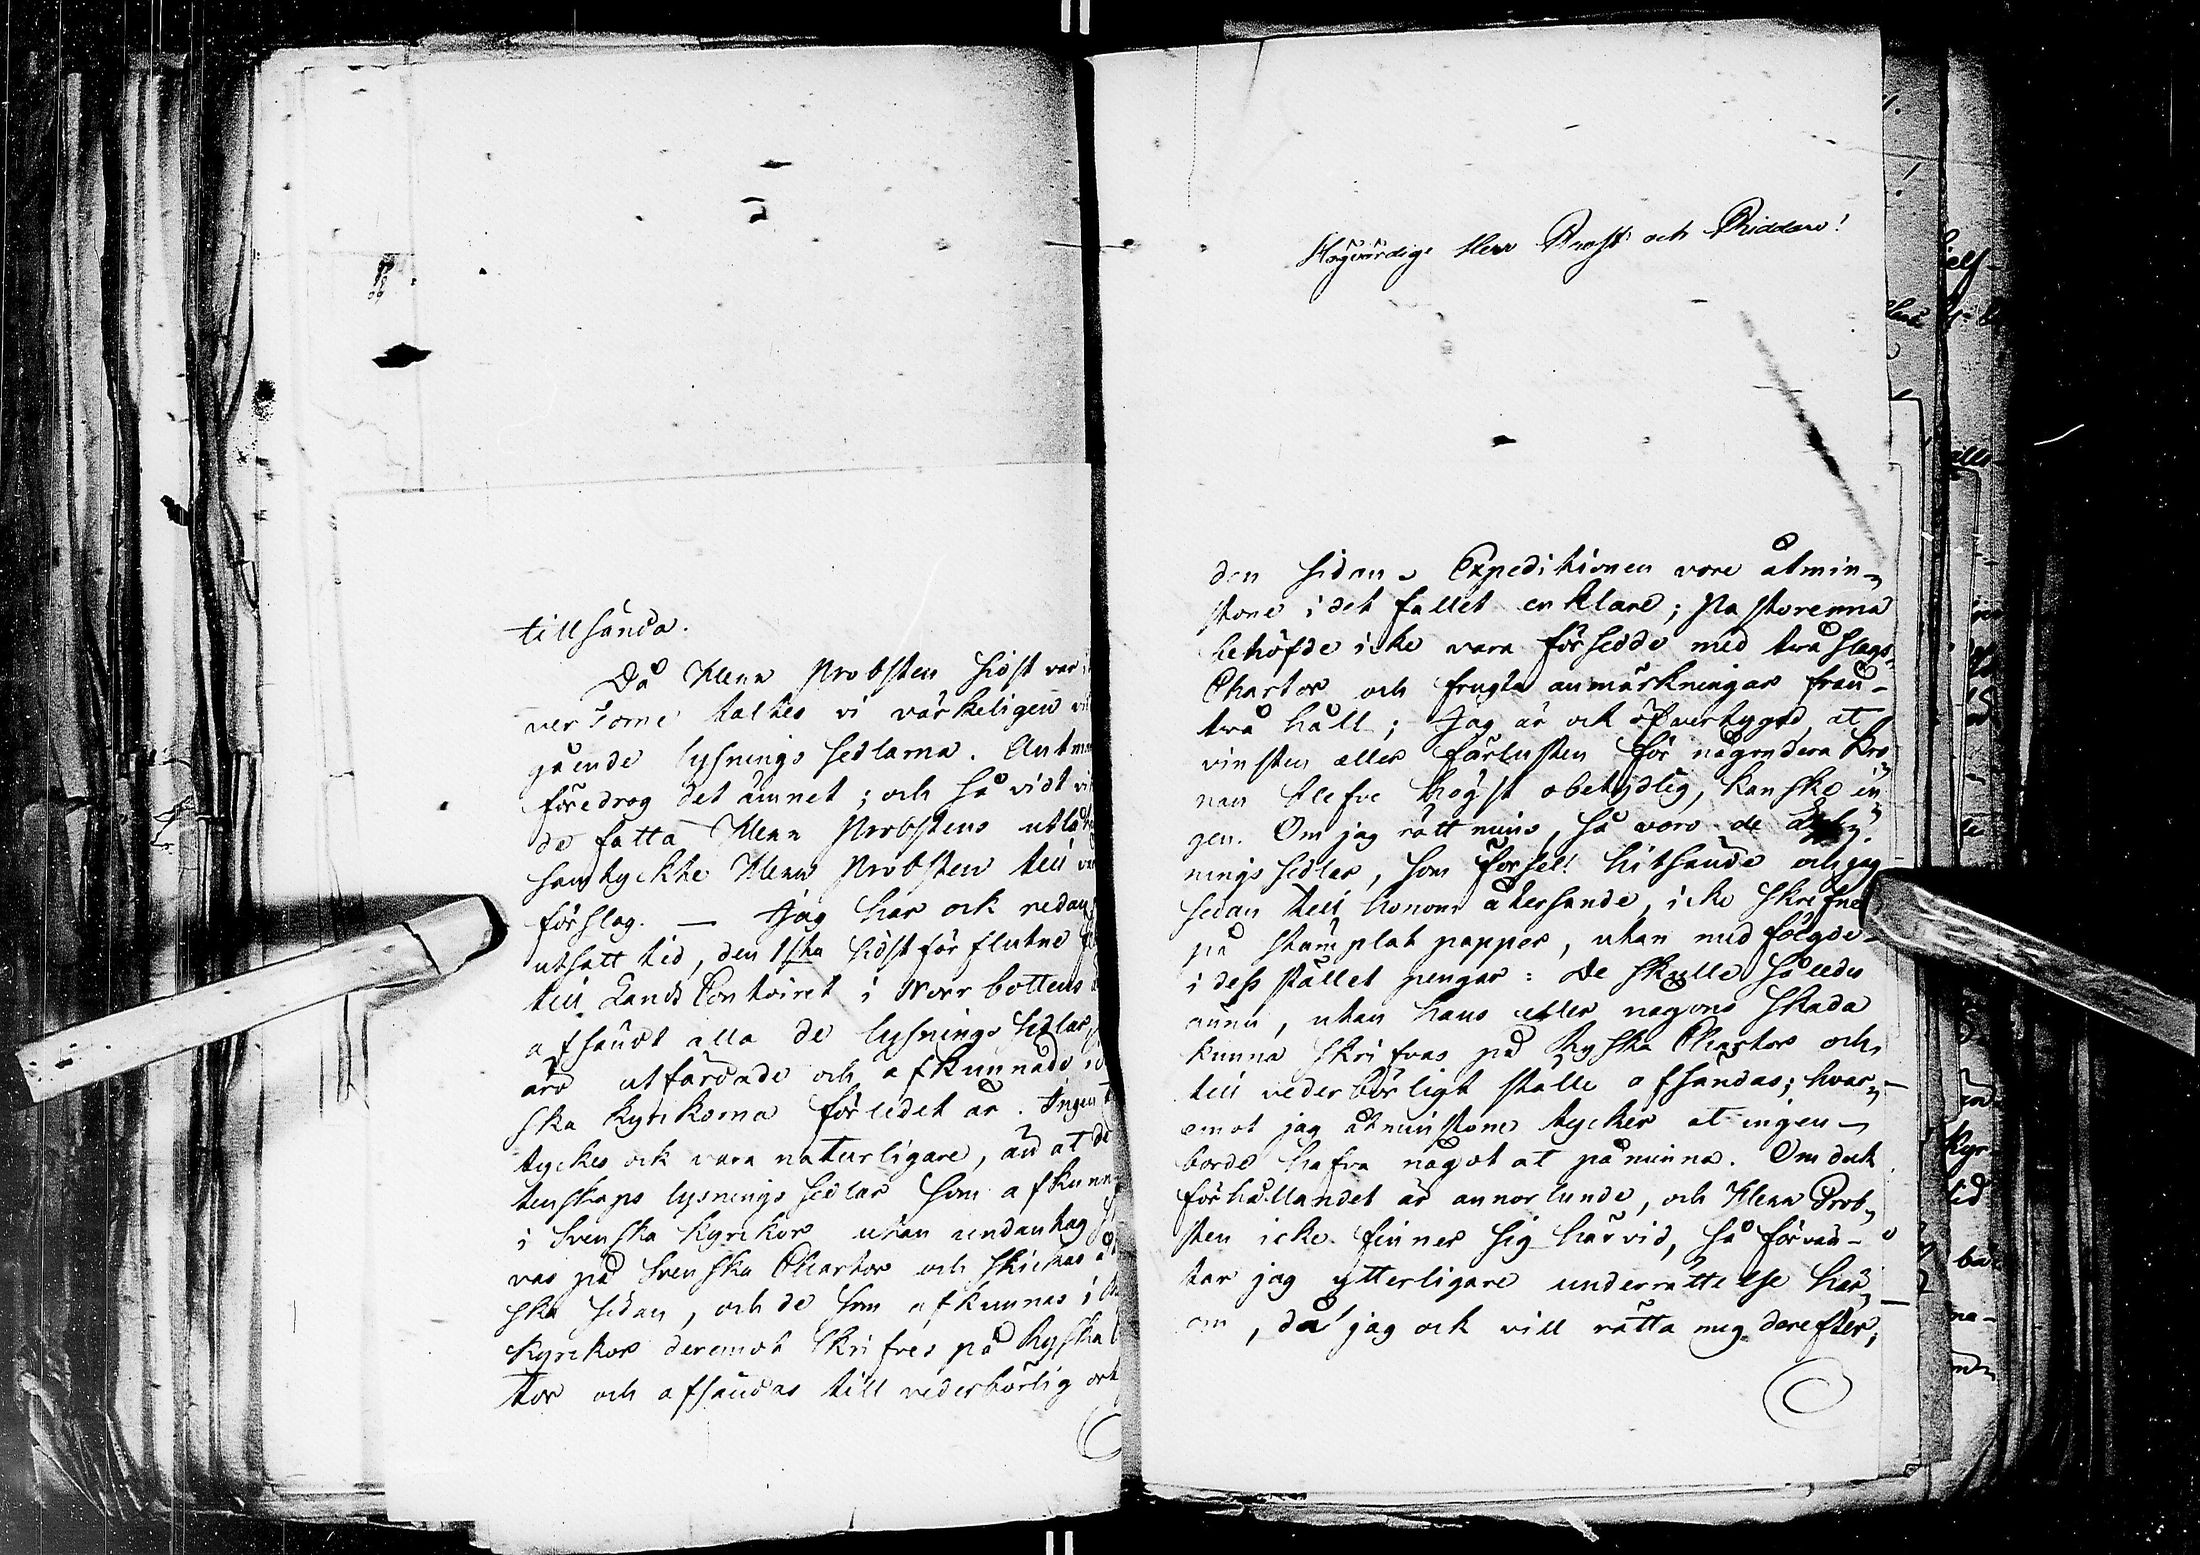 tillsända.
Då Herr Probsten sidst var
ver Torne taltes vi värkeligen
gående lysnings sedlarna.
föredrog det ämnet; och så vidt
de fatta Herr Probstens
samtyckte Herr Probsten till
förslag. — Jag har ock redan
utsatt tid, den 1sta sidst förflutne
till Lands Contoiret i Norrbottens
afsändt alla de lysnings sedlar,
äro utfärdade och afkunnade
ska kyrkorna förledet år. Ingen
tyckes ock vara naturligare, än at de
tenskaps lysnings sedlar som afkunn
i Svenska kyrkor utan undantag
vas på Svenska Chartor och skickas
ska sidan, och de som afkunnas i
kyrkor deremot skrifves på Ryska
tor och afsändas till vederbörlig ort
Högvördige Herr Prost och Riddare!
den sidan. Expeditionen vore åtmin-
stone i det fallet enklare; Pastorerna
behöfde icke vara försedde med två slags
Chartor och frugta anmärkningar från
två håll; Jag är ock öfvertygad, at
vinsten eller förlusten för någondera Kro-
nan blefve högst obetydlig, kanske in-
gen. Om jag rätt mins, så voro de
nings sedlar, som hitsände och jag
sedan till honom återsände, icke skrefne
på stämplat papper, utan medfölgde
i dess stället pengar: De skulle således
ännu, utan hans eller någons skada
kunna skrifvas på Ryska Chartor och
till vederbörligt ställe afsändas; hvar-
emot jag åtminstone tycker at ingen
borde hafva något at påminna. Om det
förhållandet är annorlunda, och Herr Prob-
sten icke finner sig härvid, så förvän-
tar jag ytterligare underrättelse här-
om, då jag ock vill rätta mig derefter,